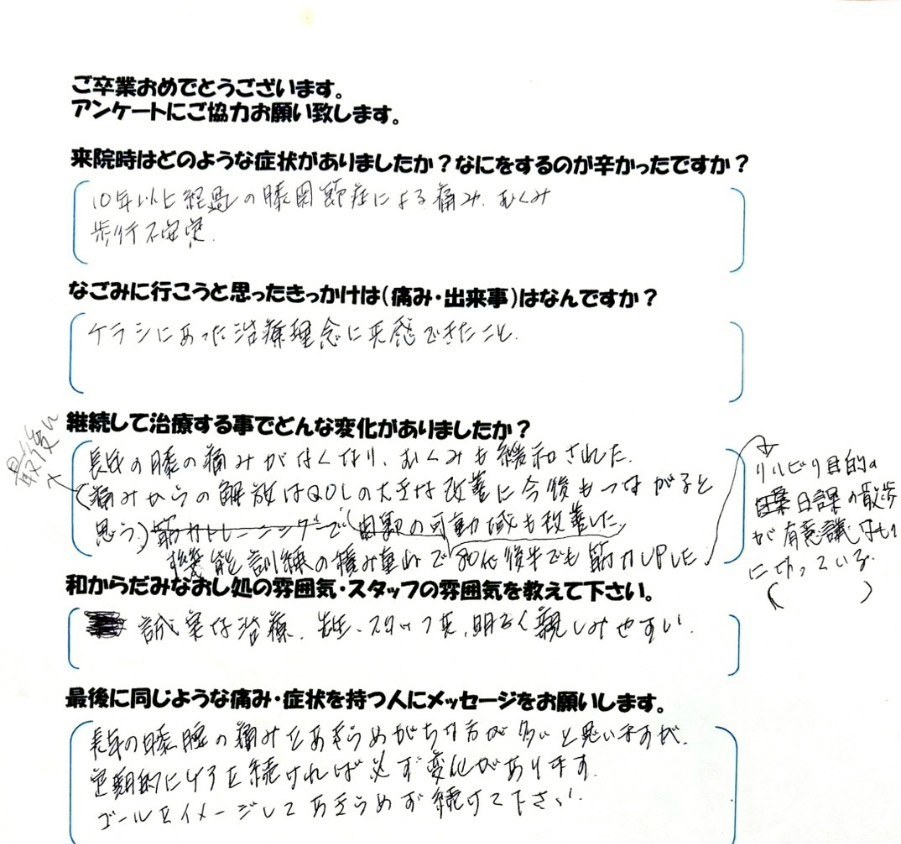 ご卒業おめでとうございます。
アンケートにご協力お願い致します。
来院時はどのような症状がありましたか？なにをするのが辛かったですか？
10年以上経過の膝関節症による痛み、むくみ
歩行不安定.
なごみに行こうと思ったきっかけは（痛み・出来事）はなんですか？
チラシにあった治療理念に共感できたこと.
継続して治療する事でどんな変化がありましたか？
最後に
長年の膝の痛みがなくなり、むくみも緩和された.
(痛みからの解放はQOLの大きな改善に今後もつながると
思う) 筋力トレーニングで の可動域も改善した
機能訓練の積み重ねで80代後半でも筋力UPした
リハビリ目的の
日課の散歩
が有意識
になっている.
和からだみなおし処の雰囲気・スタッフの雰囲気を教えて下さい。
誠実な治療. 先生、スタッフ共、明るく親しみやすい.
最後に同じような痛み・症状を持つ人にメッセージをお願いします。
長年の膝 の痛みをあきらめがちな方が多いと思いますが、
定期的に を続ければ必ず変化があります.
ゴールをイメージしてあきらめず続けて下さい.